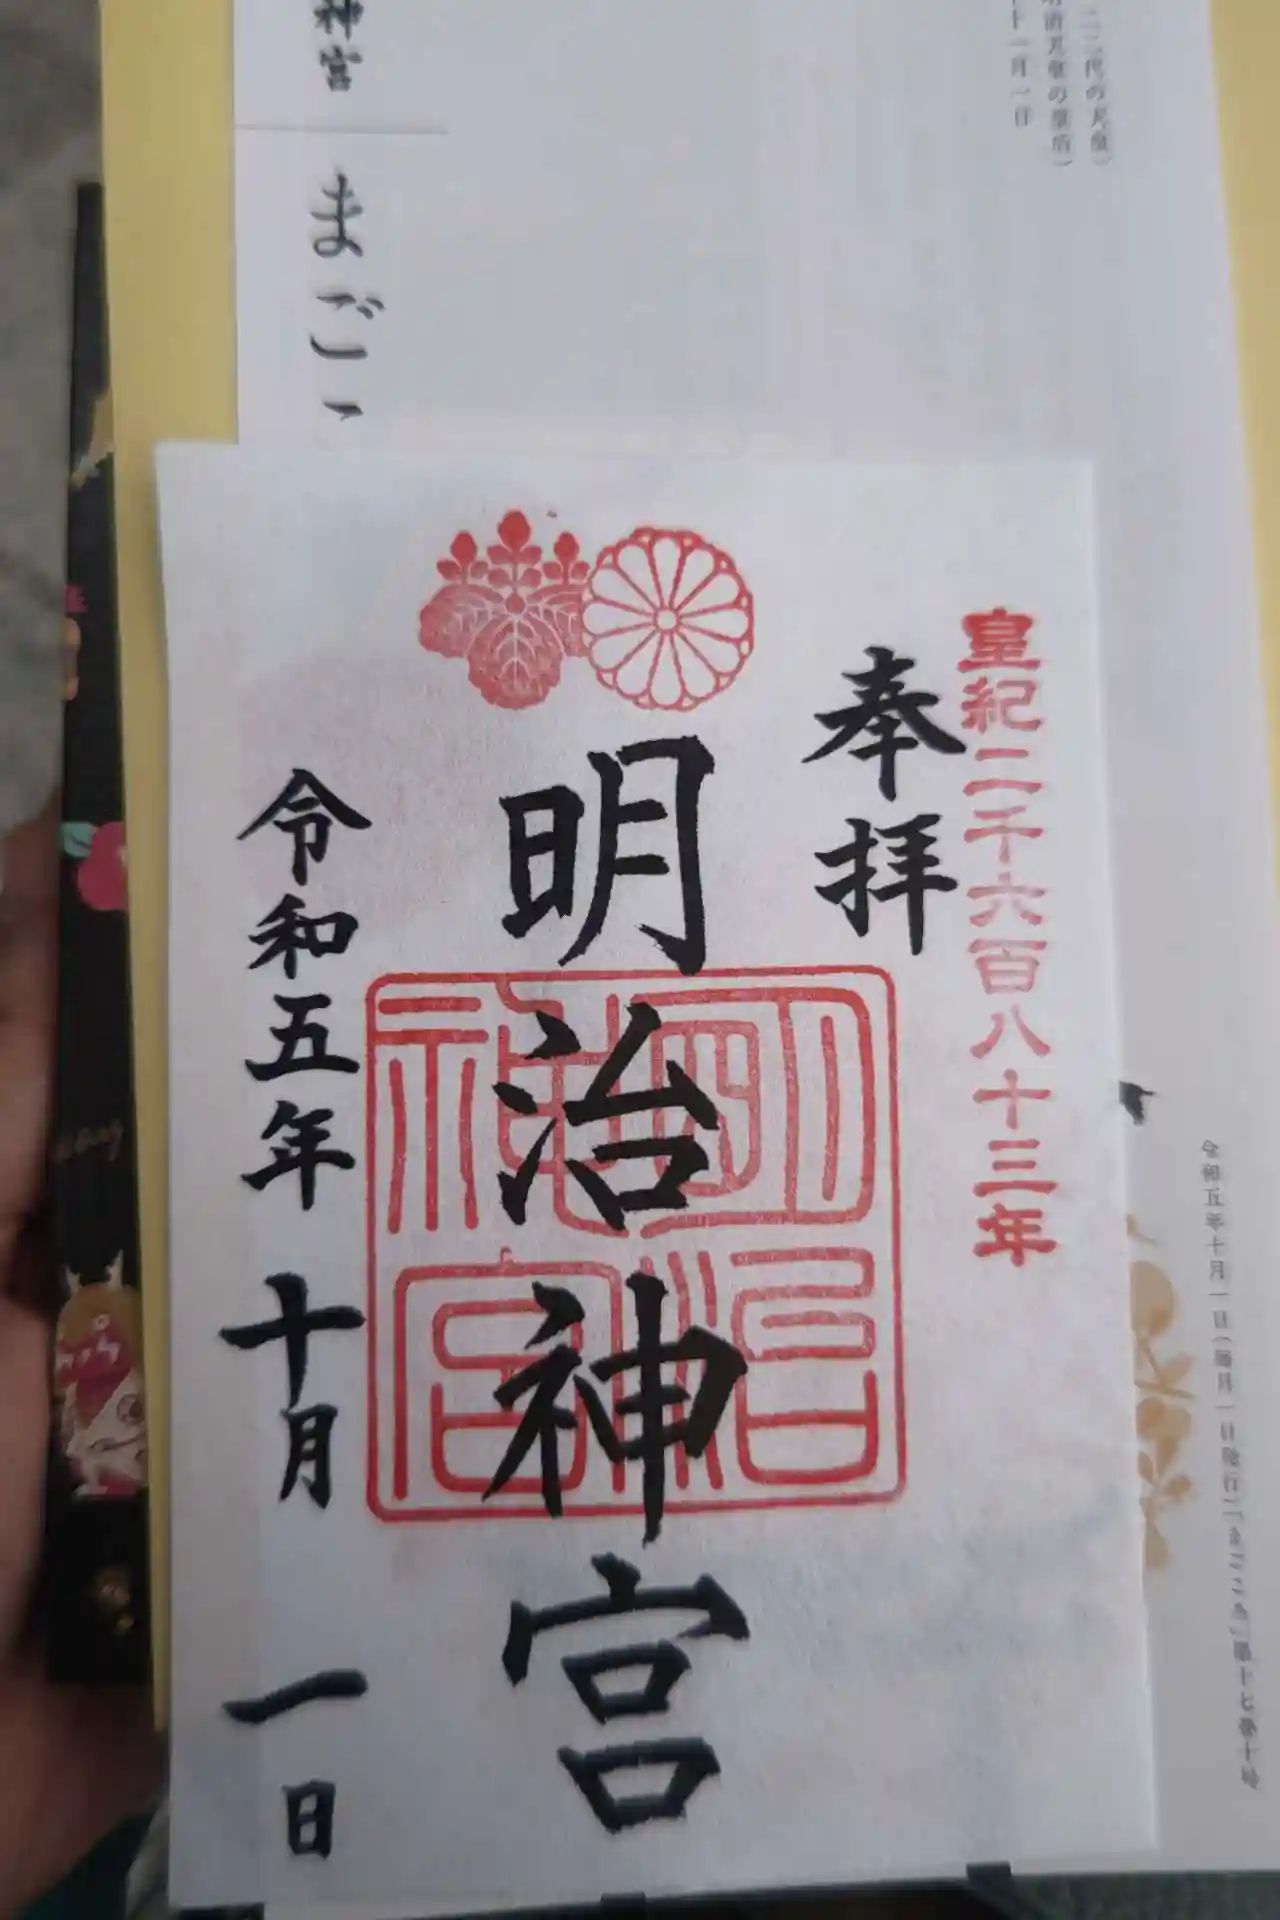 皇紀二千六百八十三年
奉拝
明治神宮
明治神宮
令和五年 十月 一日
神宮
まごこ
十一月一日
令和五年十月一日(毎月一日発行)「まごころ」第十七巻十号